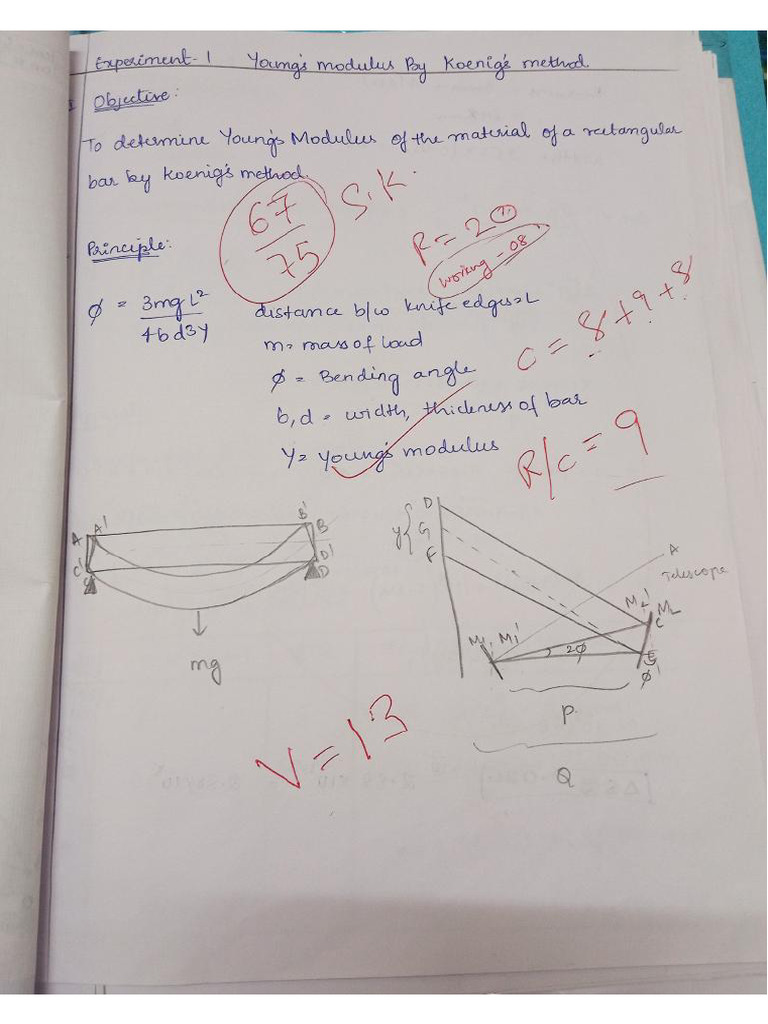 Experiment-1 Young's modulus By Koenig's method.
Objective:
To determine Young's Modulus of the material of a rectangular
bar by Koenig's method.
67/75 S.K.
R = 20
working - 08
Principle:
φ = 3mgL²/4bd3Y
distance b/w knife edges=L
m= mass of load
φ = Bending angle
b,d = width, thickness of bar
Y= young's modulus
C = 8+9+8
R/C = 9
A A' B' B
C' C D' D
mg
D
y { G
F
A
Telescope
M₁ M₁' M₂' M₂
C
2φ
E
φ'
P
Q
V = 13